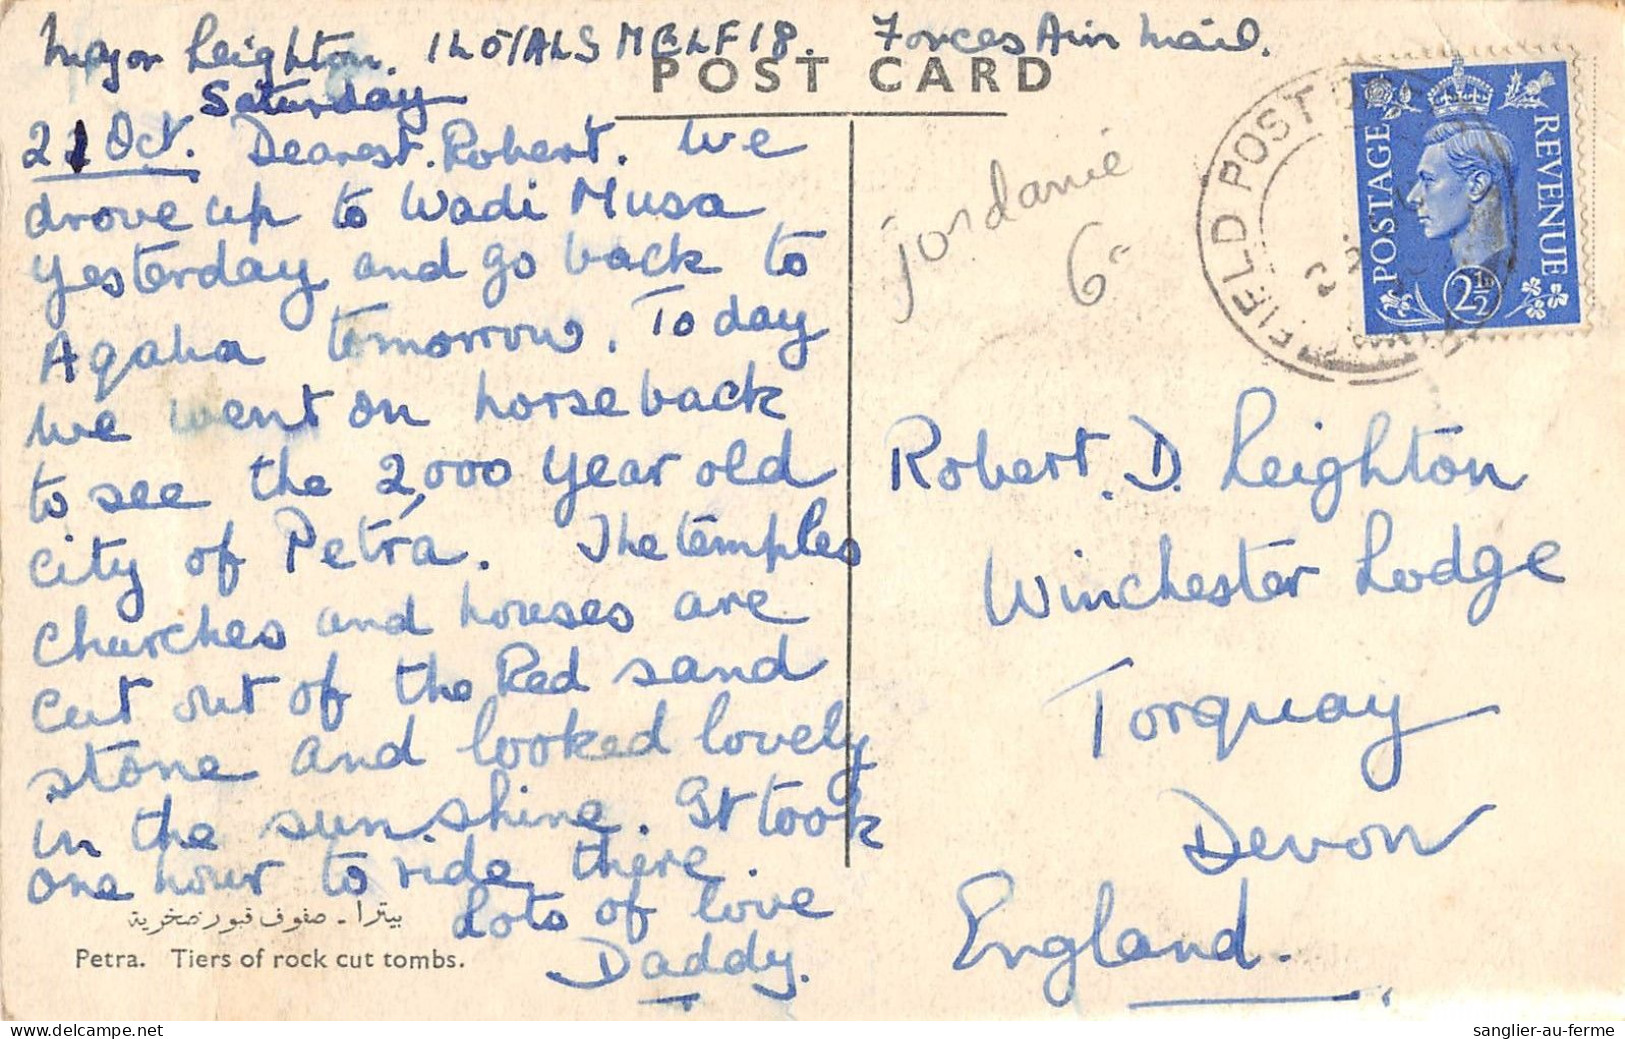 Major Leighton. Forces Air Mail.
POST CARD
Saturday
21 Oct. Dearest Robert. We
drove up to Wadi Musa
yesterday and go back to
Aqaba tomorrow. Today
we went on horseback
to see the 2,000 year old
city of Petra. The temples
churches and houses are
cut out of the Red sand
stone and looked lovely
in the sun.shine. It took
one hour to ride there.
Lots of love
Daddy.
بيترا - صفوف قبور صخرية
Petra. Tiers of rock cut tombs.
jordanie
6
FIELD POST
POSTAGE
REVENUE
2½D
Robert. D. Leighton
Winchester Lodge
Torquay
Devon
England.
sanglier-au-ferme